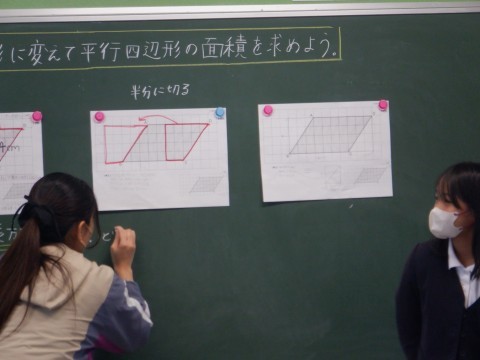 に変えて平行四辺形の面積を求めよう。
半分に切る
cm
と